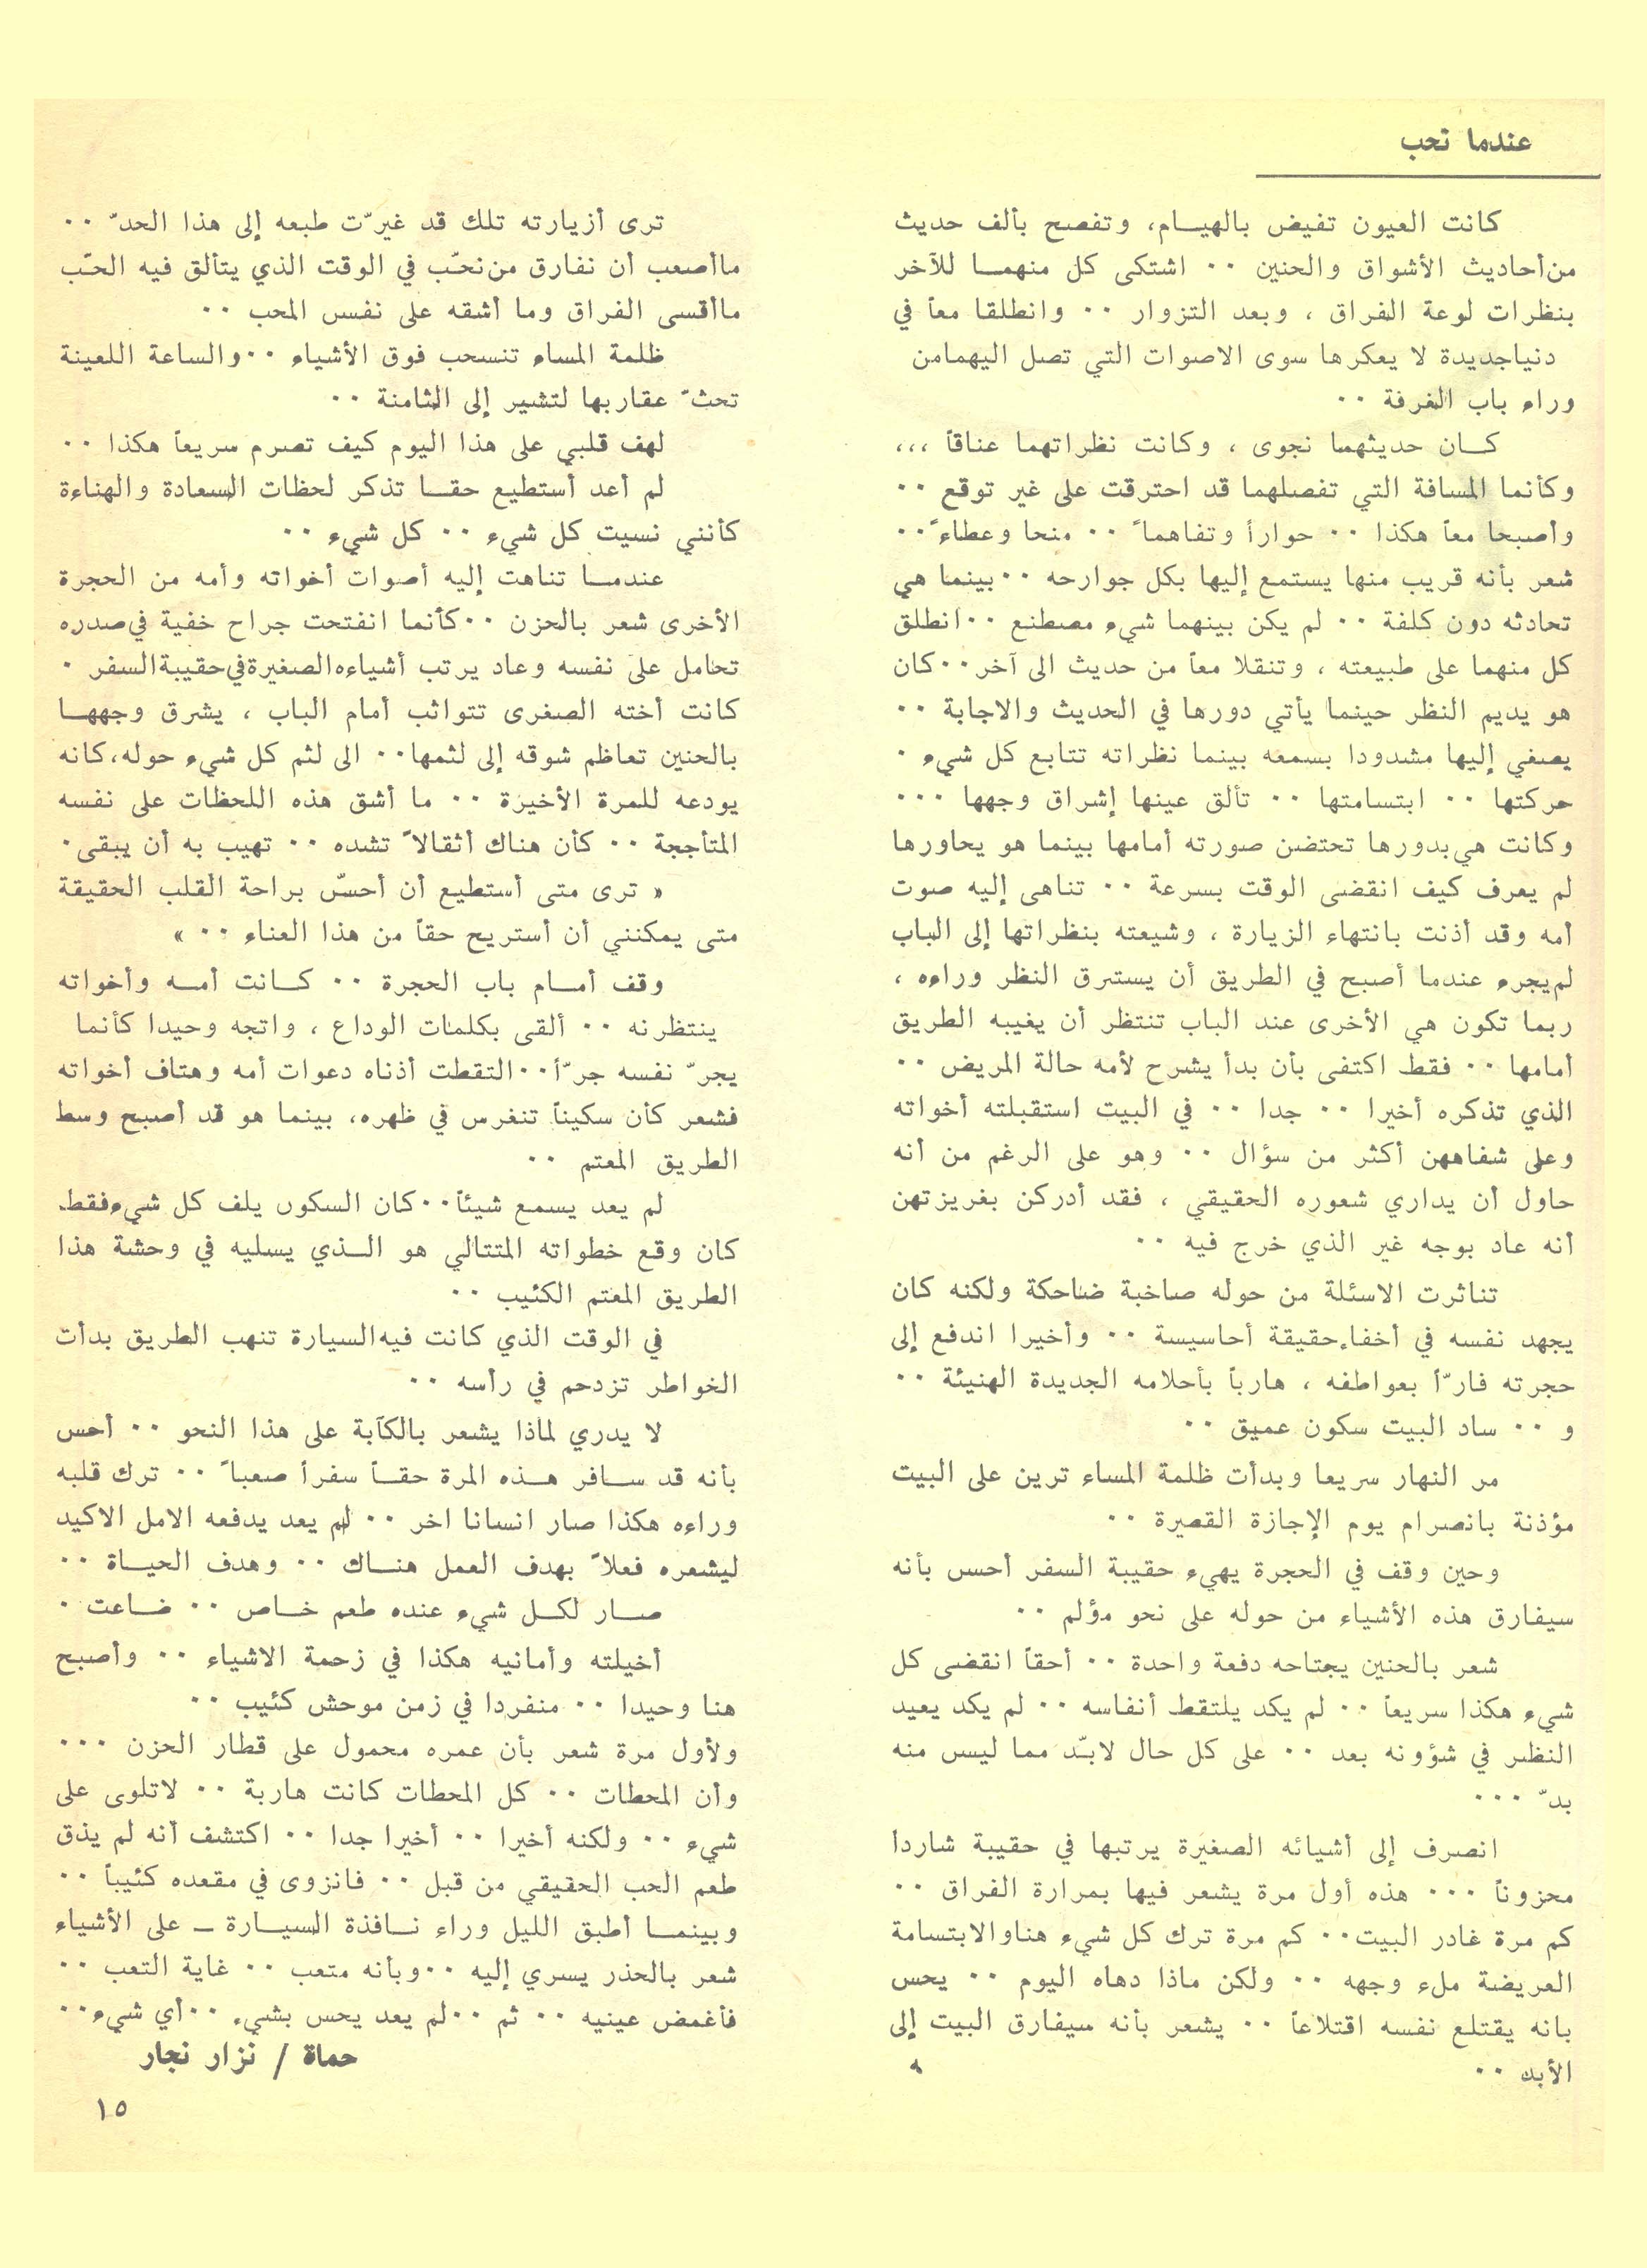 عندما تحب
كانت العيون تفيض بالهيـام، وتفصح بألف حديث
من أحاديث الأشواق والحنين ٠٠ اشتكى كل منهمـا للآخر
بنظرات لوعة الفراق ، وبعد التزوار ٠٠ وانطلقا معاً في
دنيا جديدة لا يعكرها سوى الاصوات التي تصل اليهما من
وراء باب الغرفة ٠٠
كـان حديثهما نجوى ، وكانت نظراتهما عناقاً ،،،
وكأنما المسافة التي تفصلهما قد احترقت على غير توقع ٠٠
وأصبحا معاً هكذا ٠٠ حواراً وتفاهماً ٠٠ منحا وعطاءً ٠٠
شعر بأنه قريب منها يستمع إليها بكل جوارحه ٠٠ بينما هي
تحادثه دون كلفة ٠٠ لم يكن بينهما شيء مصطنع ٠٠ انطلق
كل منهما على طبيعته ، وتنقلا معاً من حديث الى آخر ٠٠ كان
هو يديم النظر حينما يأتي دورها في الحديث والاجابة ٠٠
يصغي إليها مشدودا بسمعه بينما نظراته تتابع كل شيء ٠
حركتها ٠٠ ابتسامتها ٠٠ تألق عينها إشراق وجهها ٠٠٠
وكانت هي بدورها تحتضن صورته أمامها بينما هو يحاورها
لم يعرف كيف انقضى الوقت بسرعة ٠٠ تناهى إليه صوت
أمه وقد أذنت بانتهاء الزيارة ، وشيعته بنظراتها إلى الباب
لم يجرء عندما أصبح في الطريق أن يسترق النظر وراءه ،
ربما تكون هي الأخرى عند الباب تنتظر أن يغيبه الطريق
أمامها ٠٠ فقط اكتفى بأن بدأ يشرح لأمه حالة المريض ٠٠
الذي تذكره أخيرا ٠٠ جدا ٠٠ في البيت استقبلته أخواته
وعلى شفاههن أكثر من سؤال ٠٠ وهو على الرغم من أنه
حاول أن يداري شعوره الحقيقي ، فقد أدركن بغريزتهن
أنه عاد بوجه غير الذي خرج فيه ٠٠
تناثرت الاسئلة من حوله صاخبة ضاحكة ولكنه كان
يجهد نفسه في أخفاء حقيقة أحاسيسة ٠٠ وأخيرا اندفع إلى
حجرته فارّاً بعواطفه ، هارباً بأحلامه الجديدة الهنيئة ٠٠
و ٠٠ ساد البيت سكون عميق ٠٠
مر النهار سريعا وبدأت ظلمة المساء ترين على البيت
مؤذنة بانصرام يوم الإجازة القصيرة ٠٠
وحين وقف في الحجرة يهيء حقيبة السفر أحس بأنه
سيفارق هذه الأشياء من حوله على نحو مؤلم ٠٠
شعر بالحنين يجتاحه دفعة واحدة ٠٠ أحقاً انقضى كل
شيء هكذا سريعاً ٠٠ لم يكد يلتقط أنفاسه ٠٠ لم يكد يعيد
النظر في شؤونه بعد ٠٠ على كل حال لابدّ مما ليس منه
بدّ ٠٠٠
انصرف إلى أشيائه الصغيرة يرتبها في حقيبة شارداً
محزوناً ٠٠٠ هذه أول مرة يشعر فيها بمرارة الفراق ٠٠
كم مرة غادر البيت ٠٠ كم مرة ترك كل شيء هنا والابتسامة
العريضة ملء وجهه ٠٠ ولكن ماذا دهاه اليوم ٠٠ يحس
بانه يقتلع نفسه اقتلاعاً ٠٠ يشعر بأنه سيفارق البيت إلى
الأبد ٠٠
ترى أزيارته تلك قد غيرّت طبعه إلى هذا الحدّ ٠٠
ما أصعب أن نفارق من نحّب في الوقت الذي يتألق فيه الحّب
ما أقسى الفراق وما أشقه على نفس المحب ٠٠
ظلمة المساء تنسحب فوق الأشياء ٠٠ والساعة اللعينة
تحثّ عقاربها لتشير إلى الثامنة ٠٠
لهف قلبي على هذا اليوم كيف تصرم سريعاً هكذا ٠٠
لم أعد أستطيع حقـا تذكر لحظات السعادة والهناءة
كأنني نسيت كل شيء ٠٠ كل شيء ٠٠
عندمـا تناهت إليه أصوات أخواته وأمه من الحجرة
الأخرى شعر بالحزن ٠٠ كأنما انفتحت جراح خفية في صدره
تحامل على نفسه وعاد يرتب أشياءه الصغيرة في حقيبة السفر ٠
كانت أخته الصغرى تتواثب أمام الباب ، يشرق وجههـا
بالحنين تعاظم شوقه إلى لثمها ٠٠ الى لثم كل شيء حوله، كانه
يودعه للمرة الأخيرة ٠٠ ما أشق هذه اللحظات على نفسه
المتأججة ٠٠ كأن هناك أثقالاً تشده ٠٠ تهيب به أن يبقى ٠
« ترى متى أستطيع أن أحسّ براحة القلب الحقيقة
متى يمكنني أن أستريح حقاً من هذا العناء ٠٠ »
وقف أمـام باب الحجرة ٠٠ كـانت أمـه وأخواته
ينتظرنه ٠٠ ألقى بكلمات الوداع ، واتجه وحيدا كأنما
يجرّ نفسه جرّاً ٠٠ التقطت أذناه دعوات أمه وهتاف أخواته
فشعر كأن سكيناً تنغرس في ظهره، بينما هو قد أصبح وسط
الطريق المعتم ٠٠
لم يعد يسمع شيئاً ٠٠ كان السكون يلف كل شيء فقط
كان وقع خطواته المتتالي هو الـذي يسليه في وحشة هذا
الطريق المعتم الكئيب ٠٠
في الوقت الذي كانت فيه السيارة تنهب الطريق بدأت
الخواطر تزدحم في رأسه ٠٠
لا يدري لماذا يشعر بالكآبة على هذا النحو ٠٠ أحس
بأنه قد سـافر هـذه المرة حقـاً سفراً صعباً ٠٠ ترك قلبه
وراءه هكذا صار انسانا اخر ٠٠ لم يعد يدفعه الامل الاكيد
ليشعره فعلاً بهدف العمل هنـاك ٠٠ وهدف الحيـاة ٠٠
صـار لكـل شيء عنده طعم خـاص ٠٠ ضـاعت ٠
أخيلته وأمانيه هكذا في زحمة الاشياء ٠٠ وأصبح
هنا وحيدا ٠٠ منفردا في زمن موحش كئيب ٠٠
ولأول مرة شعر بأن عمره محمول على قطار الحزن ٠٠٠
وأن المحطات ٠٠ كل المحطات كانت هاربة ٠٠ لاتلوى على
شيء ٠٠ ولكنه أخيرا ٠٠ أخيرا جدا ٠٠ اكتشف أنه لم يذق
طعم الحب الحقيقي من قبل ٠٠ فانزوى في مقعده كئيباً ٠٠
وبينمـا أطبق الليل وراء نـافذة السيـارة ـ على الأشياء
شعر بالحذر يسري إليه ٠٠ وبأنه متعب ٠٠ غاية التعب ٠٠
فأغمض عينيه ٠٠ ثم ٠٠ لم يعد يحس بشيء ٠٠ أي شيء ٠٠
حماة / نزار نجار
١٥